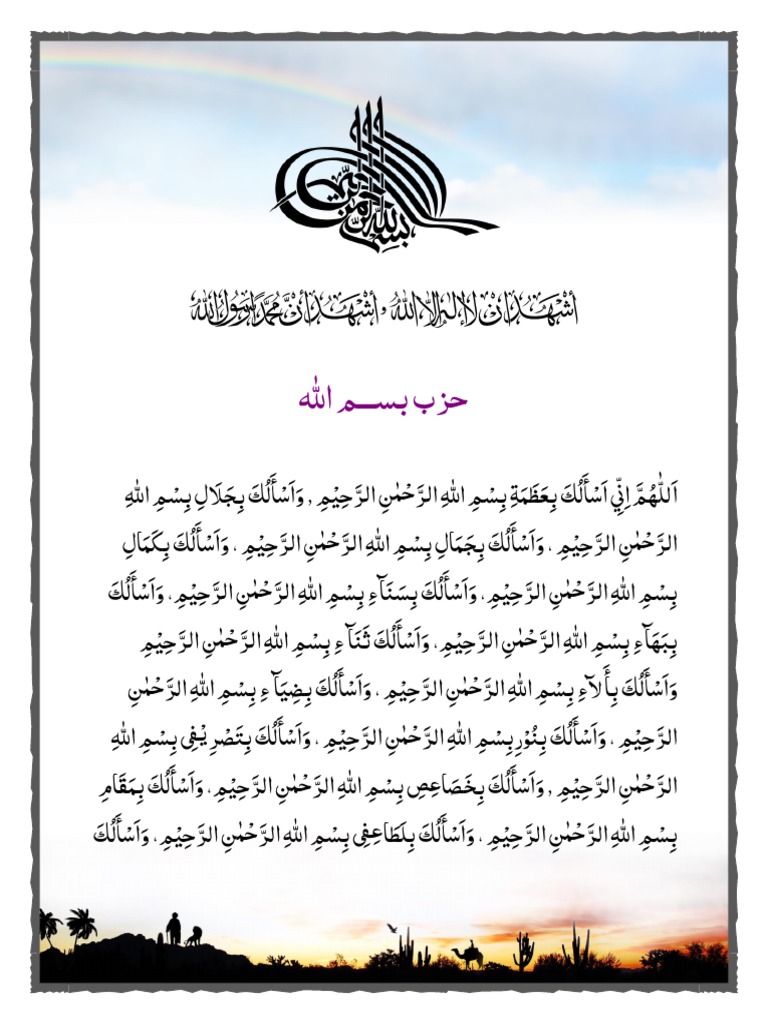 بسم الله الرحمن الرحيم
أشهد ان لا اله الا الله و أشهد أن محمدا رسول الله
حزب بســـم الله
اَللّٰهُمَّ اِنِّيْ اَسْأَلُكَ بِعَظَمَةِ بِسْمِ اللهِ الرَّحْمٰنِ الرَّحِيْمِ , وَاَسْأَلُكَ بِجَلَالِ بِسْمِ اللهِ
الرَّحْمٰنِ الرَّحِيْمِ ، وَاَسْأَلُكَ بِجَمَالِ بِسْمِ اللهِ الرَّحْمٰنِ الرَّحِيْمِ ، وَاَسْأَلُكَ بِكَمَالِ
بِسْمِ اللهِ الرَّحْمٰنِ الرَّحِيْمِ، وَاَسْأَلُكَ بِسَنَآءِ بِسْمِ اللهِ الرَّحْمٰنِ الرَّحِيْمِ، وَاَسْأَلُكَ
بِبَهَآءِ بِسْمِ اللهِ الرَّحْمٰنِ الرَّحِيْمِ، وَاَسْأَلُكَ ثَنَآءِ بِسْمِ اللهِ الرَّحْمٰنِ الرَّحِيْمِ
وَاَسْأَلُكَ بِأَلآءِ بِسْمِ اللهِ الرَّحْمٰنِ الرَّحِيْمِ ، وَاَسْأَلُكَ بِضِيَآءِ بِسْمِ اللهِ الرَّحْمٰنِ
الرَّحِيْمِ ، وَاَسْأَلُكَ بِنُوْرِ بِسْمِ اللهِ الرَّحْمٰنِ الرَّحِيْمِ ، وَاَسْأَلُكَ بِتَصْرِيْفِى بِسْمِ اللهِ
الرَّحْمٰنِ الرَّحِيْمِ , وَاَسْأَلُكَ بِخَصَاعِصِ بِسْمِ اللهِ الرَّحْمٰنِ الرَّحِيْمِ، وَاَسْأَلُكَ بِمَقَامِ
بِسْمِ اللهِ الرَّحْمٰنِ الرَّحِيْمِ ، وَاَسْأَلُكَ بِلَطَاعِفِى بِسْمِ اللهِ الرَّحْمٰنِ الرَّحِيْمِ، وَاَسْأَلُكَ